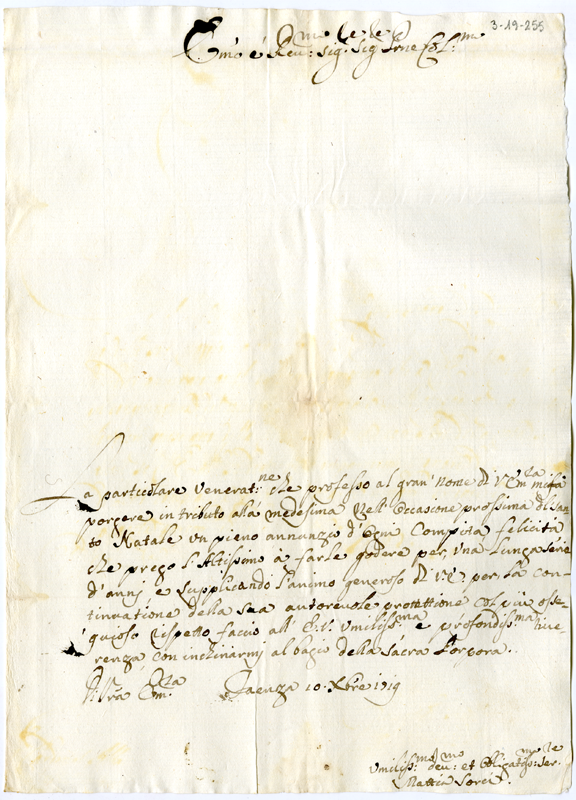 3-19-255
Em̃o e Reu:mo Sig:le Sig:le Prne Col:mo
La particolare venerat:ne che professo al gran' nome di V Em:za mi fà
porgere in tributo alla medesima nell'Occasione prossima di San
to Natale un pieno annunzio d'ogni Compita felicità
che prego l'Altissimo à farle godere per una lunga serie
d'annj e supplicando l'animo generoso di V.E. per la con-
tinuatione della sua autoreuole protettione col più osse-
quioso rispetto faccio all' E.V. umiliss:ma e profondiss:ma riue-
renza con inchinarmj al bagio della Sacra Porpora.
Di Vra Em:za Faenza 10. Xbre 1719
Umiliss:mo deu:mo et obligatiss:mo ser:le
Mattia